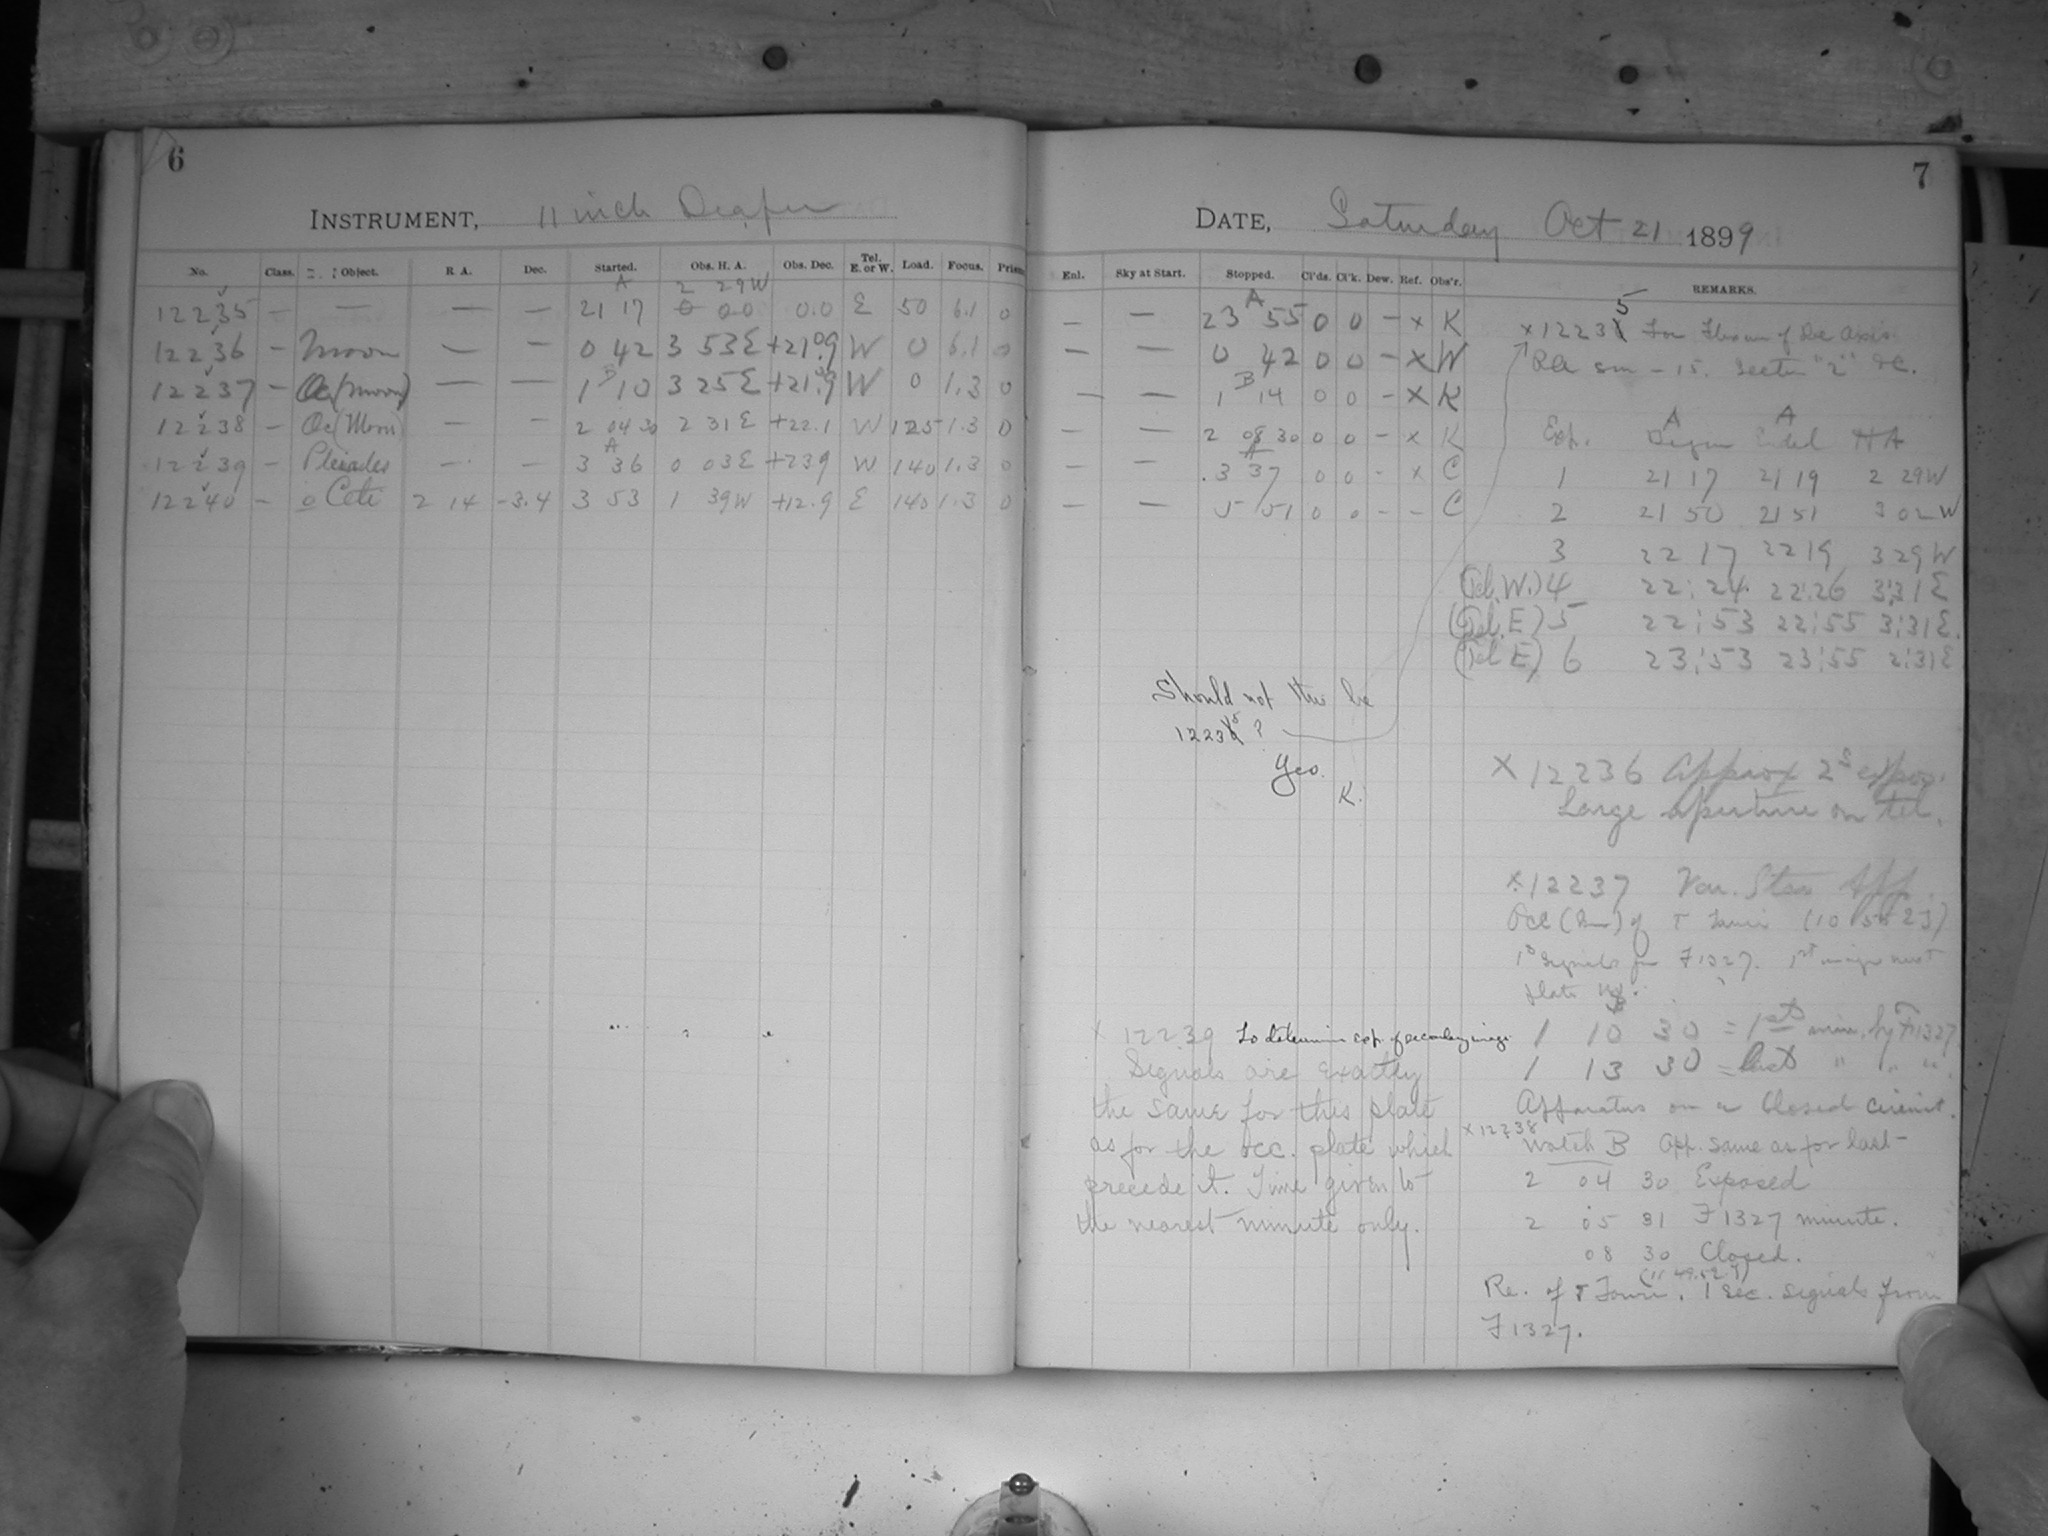 6
INSTRUMENT, 11 inch Draper
No. Class. Object. R. A. Dec. Started. Obs. H. A. Obs. Dec. Tel. E. or W. Load. Focus. Prism
A 2 29W
12235 — — — — 21 17 0 00 0.0 E 50 6.1 0
12236 — Moon — — 0 42 3 53E +21.9 W 0 6.1 0
B
12237 — Oc(Moon) — — 1 10 3 25E +21.9 W 0 1.3 0
12238 — Oc(Moon — — 2 04 30 2 31E +22.1 W 125 1.3 0
A
12239 — Pleiades — — 3 36 0 03E +23.9 W 140 1.3 0
12240 — o Ceti 2 14 -3.4 3 53 1 39W +12.9 E 140 1.3 0
7
DATE, Saturday Oct 21 1899
Enl. Sky at Start. Stopped. Cl'ds. Cl'k. Dew. Ref. Obs'r. REMARKS.
A
— — 23 55 0 0 — x K
— — 0 42 0 0 — x W
B
— — 1 14 0 0 — x K
— — 2 08 30 0 0 — x K
A
— — 3 37 0 0 — x C
— — 5 51 0 0 — — C
5
x 1223 For Flexure of Dec Axis.
15. "2" &c.
A A
Exp. Began Ended HA
1 21 17 21 19 2 29W
2 21 50 21 51 3 02W
3 22 17 22 19 3 29W
(Tel. W.) 4 22:24 22:26 3:31E
(Tel. E) 5 22:53 22:55 3:31E.
(Tel E) 6 23:53 23:55 2:31E
Should not this be
1223 5 ?
Yes.
K.
x 12236 Approx 2s expos.
Large aperture on tel.
x 12237 Var. Star App.
Occ ( ) of τ Tauri (10 23)
1s signals from F1327. 1st image
plate
1 10 30 = 1st min. by F1327
1 13 30 = last " " "
Apparatus on a closed circuit.
x 12238
Watch B App. same as for last
2 04 30 Exposed
2 05 31 F1327 minute.
08 30 Closed.
Re. of τ Tauri. 1 sec. signals from
F1327.
x 12239 To determine exp. of secondary image
Signals are exactly
the same for this plate
as for the occ. plate which
precede it. Time given to
the nearest minute only.